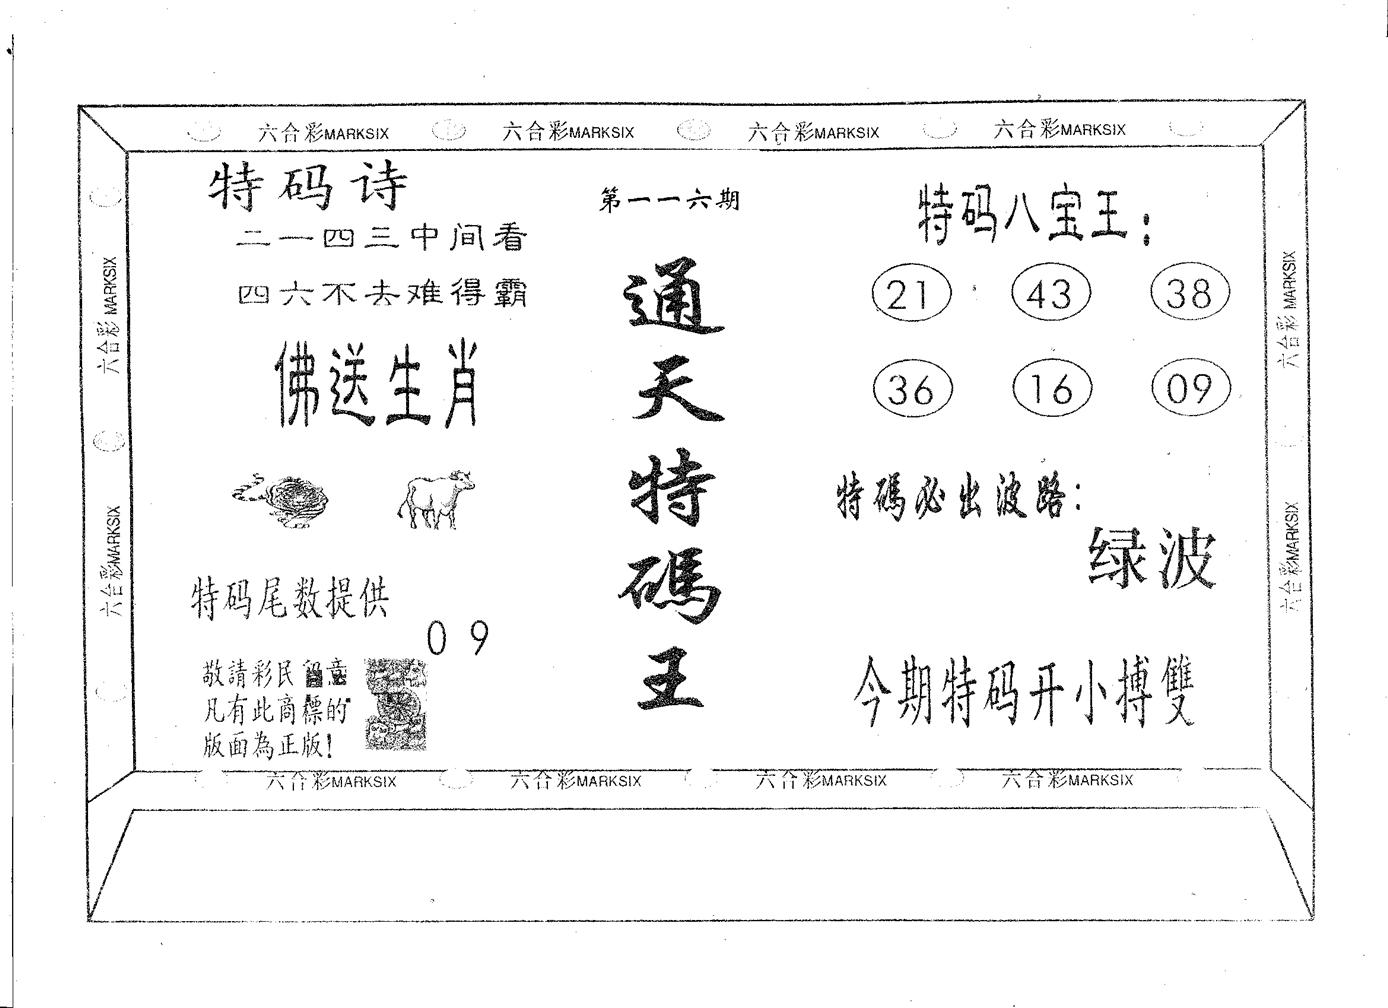 六合彩MARKSIX 六合彩MARKSIX 六合彩MARKSIX 六合彩MARKSIX
六合彩 MARKSIX
六合彩MARKSIX
特码诗
二一四三中间看
四六不去难得霸
佛送生肖
特码尾数提供
0 9
敬請彩民留意
凡有此商標的
版面為正版!
第一一六期
通天特碼王
特码八宝王:
21 43 38
36 16 09
特碼必出波路:
绿波
今期特码开小搏雙
六合彩 MARKSIX
六合彩MARKSIX
六合彩MARKSIX 六合彩MARKSIX 六合彩MARKSIX 六合彩MARKSIX